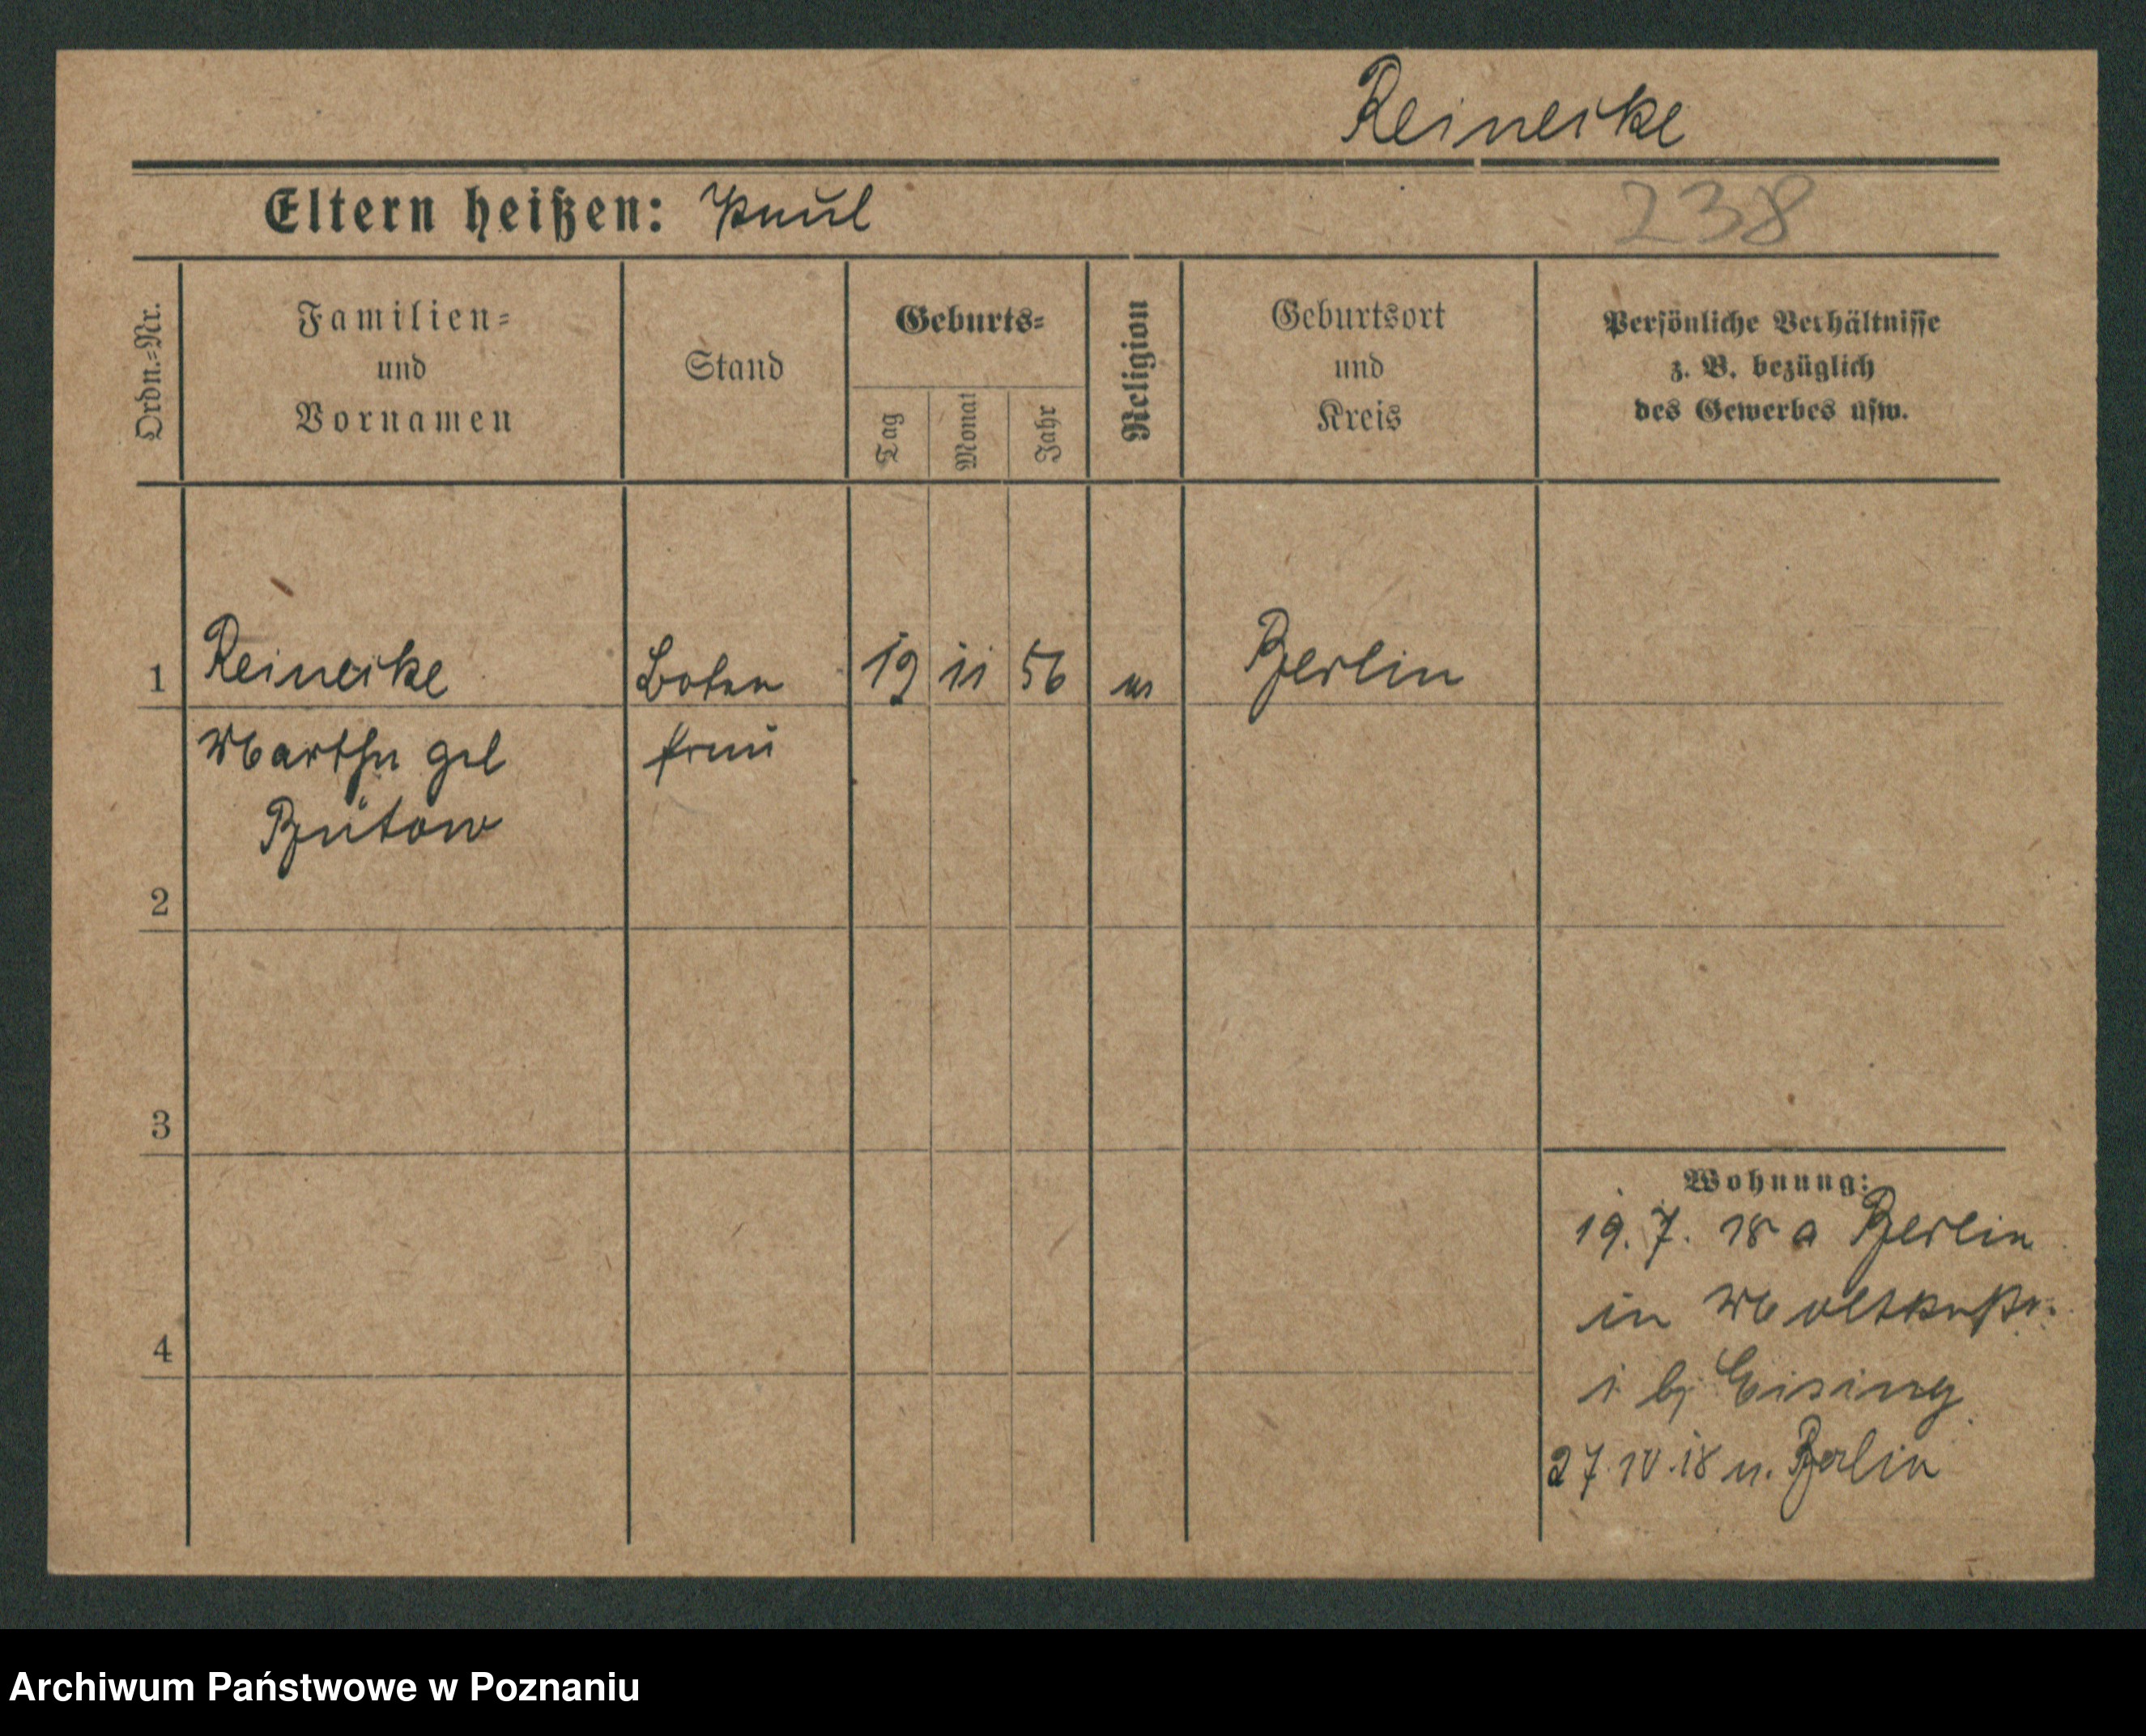 Reinecke
Eltern heißen: Paul
238
Ordn.-Nr.
Familien-
und
Vornamen
Stand
Geburts-
Tag
Monat
Jahr
Religion
Geburtsort
und
Kreis
Persönliche Verhältnisse
z. B. bezüglich
des Gewerbes usw.
1 Reinecke Boten 19 11 56 Berlin
Martha geb frau
Bütow
2
3
4
Wohnung:
19. 7. 18 a Berlin
in Moltkestr.
1 bj Eising
27 10 18 n. Berlin
Archiwum Państwowe w Poznaniu